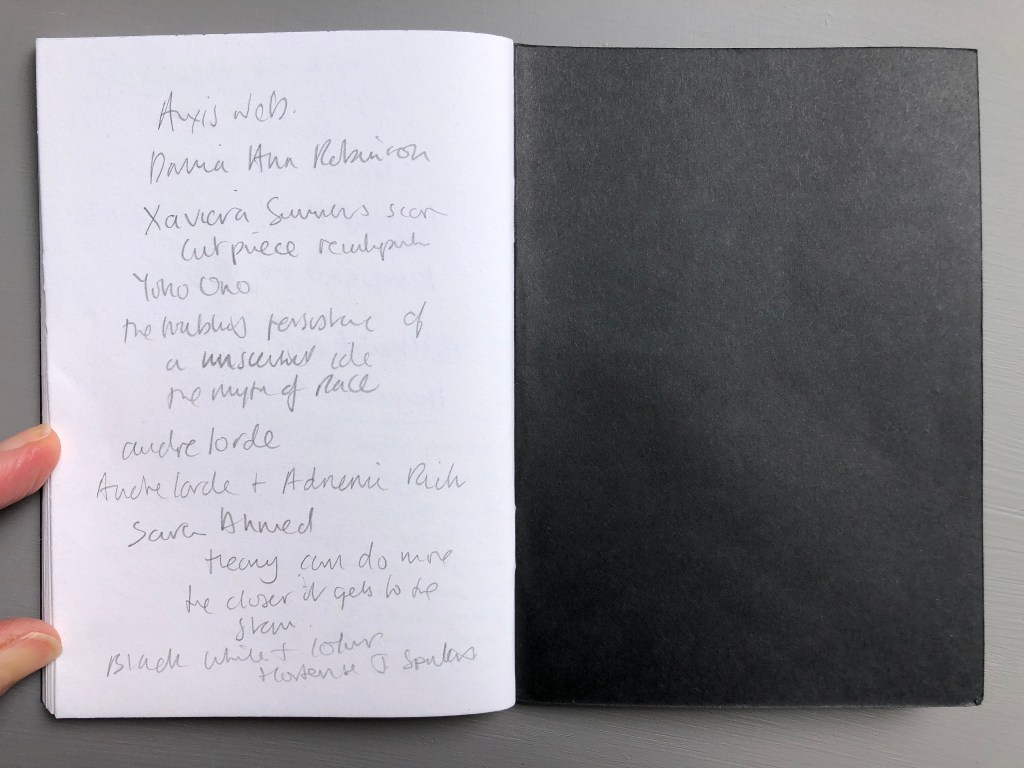 Axis web.
Dania Ann Robinson
Xaviera Simmons
Cut piece
Yoko Ono
the troubling persistence of
a unscientific idea
the myth of race
audre lorde
Audre lorde + Adrienne Rich
Sara Ahmed
theory can do more
the closer it gets to the
skin
Black white + colour
Hortense J Spillers